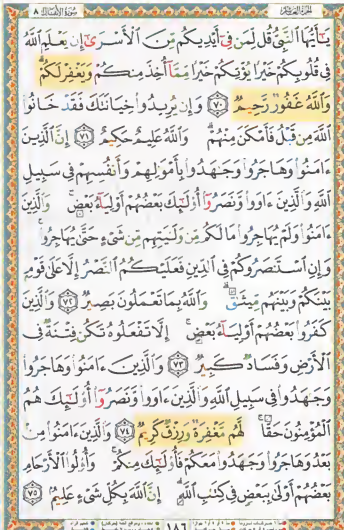 سورة الأنفال ٨
يَٰٓأَيُّهَا ٱلنَّبِىُّ قُل لِّمَن فِىٓ أَيْدِيكُم مِّنَ ٱلْأَسْرَىٰٓ إِن يَعْلَمِ ٱللَّهُ
فِى قُلُوبِكُمْ خَيْرًا يُؤْتِكُمْ خَيْرًا مِّمَّآ أُخِذَ مِنكُمْ وَيَغْفِرْ لَكُمْ
وَٱللَّهُ غَفُورٌ رَّحِيمٌ ٧٠ وَإِن يُرِيدُوا۟ خِيَانَتَكَ فَقَدْ خَانُوا۟
ٱللَّهَ مِن قَبْلُ فَأَمْكَنَ مِنْهُمْ وَٱللَّهُ عَلِيمٌ حَكِيمٌ ٧١ إِنَّ ٱلَّذِينَ
ءَامَنُوا۟ وَهَاجَرُوا۟ وَجَٰهَدُوا۟ بِأَمْوَٰلِهِمْ وَأَنفُسِهِمْ فِى سَبِيلِ
ٱللَّهِ وَٱلَّذِينَ ءَاوَوا۟ وَّنَصَرُوٓا۟ أُو۟لَٰٓئِكَ بَعْضُهُمْ أَوْلِيَآءُ بَعْضٍ وَٱلَّذِينَ
ءَامَنُوا۟ وَلَمْ يُهَاجِرُوا۟ مَا لَكُم مِّن وَلَٰيَتِهِم مِّن شَىْءٍ حَتَّىٰ يُهَاجِرُوا۟
وَإِنِ ٱسْتَنصَرُوكُمْ فِى ٱلدِّينِ فَعَلَيْكُمُ ٱلنَّصْرُ إِلَّا عَلَىٰ قَوْمٍۭ
بَيْنَكُمْ وَبَيْنَهُم مِّيثَٰقٌ وَٱللَّهُ بِمَا تَعْمَلُونَ بَصِيرٌ ٧٢ وَٱلَّذِينَ
كَفَرُوا۟ بَعْضُهُمْ أَوْلِيَآءُ بَعْضٍ إِلَّا تَفْعَلُوهُ تَكُن فِتْنَةٌ فِى
ٱلْأَرْضِ وَفَسَادٌ كَبِيرٌ ٧٣ وَٱلَّذِينَ ءَامَنُوا۟ وَهَاجَرُوا۟
وَجَٰهَدُوا۟ فِى سَبِيلِ ٱللَّهِ وَٱلَّذِينَ ءَاوَوا۟ وَّنَصَرُوٓا۟ أُو۟لَٰٓئِكَ هُمُ
ٱلْمُؤْمِنُونَ حَقًّا لَّهُم مَّغْفِرَةٌ وَرِزْقٌ كَرِيمٌ ٧٤ وَٱلَّذِينَ ءَامَنُوا۟ مِنۢ
بَعْدُ وَهَاجَرُوا۟ وَجَٰهَدُوا۟ مَعَكُمْ فَأُو۟لَٰٓئِكَ مِنكُمْ وَأُو۟لُوا۟ ٱلْأَرْحَامِ
بَعْضُهُمْ أَوْلَىٰ بِبَعْضٍ فِى كِتَٰبِ ٱللَّهِ إِنَّ ٱللَّهَ بِكُلِّ شَىْءٍ عَلِيمٌۢ ٧٥
١٨٦